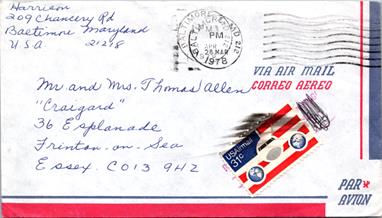 Harrison
209 Chancery Rd
Baltimore Maryland
USA 21218
BALTIMORE, MD 212
PM
1978
VIA AIR MAIL
CORREO AEREO
Mr and Mrs. Thomas Allen
"Craigard"
36 Esplanade
Frinton-on-Sea
Essex CO13 9HZ
USAirmail
31c
PAR
AVION